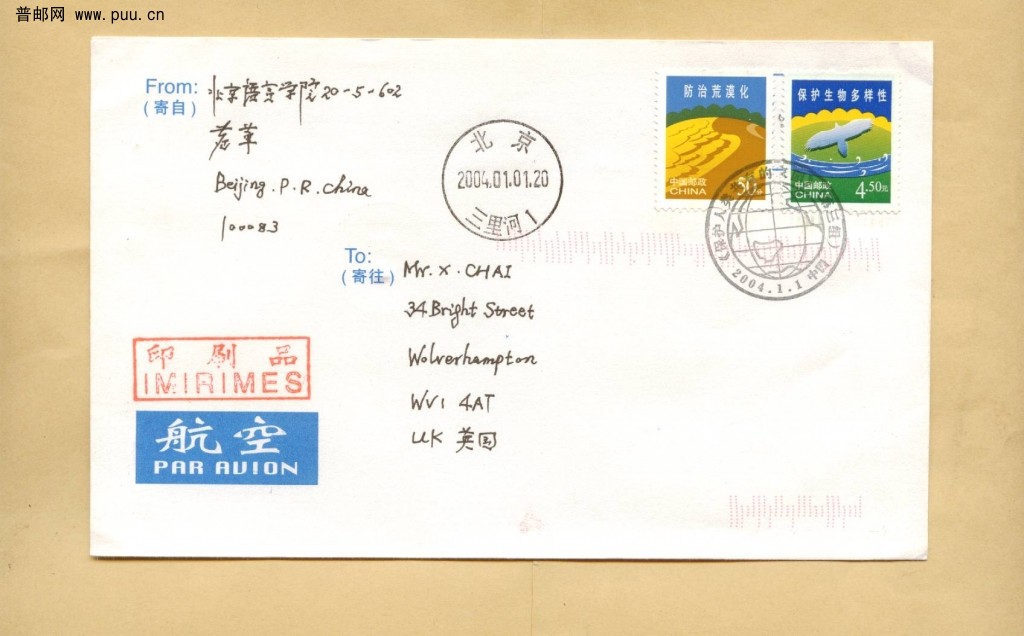 普邮网 www.puu.cn
From:
(寄自)
北京语言学院 20-5-602
Beijing. P. R. China
100083
北京
2004.01.01.20
三里河1
防治荒漠化
中国邮政
CHINA
50
保护生物多样性
中国邮政
CHINA
4.50元
2004.1.1
To:
(寄往)
Mr. X. CHAI
34 Bright Street
Wolverhampton
WV1 4AT
UK 英国
印刷品
IMIRIMES
航空
PAR AVION